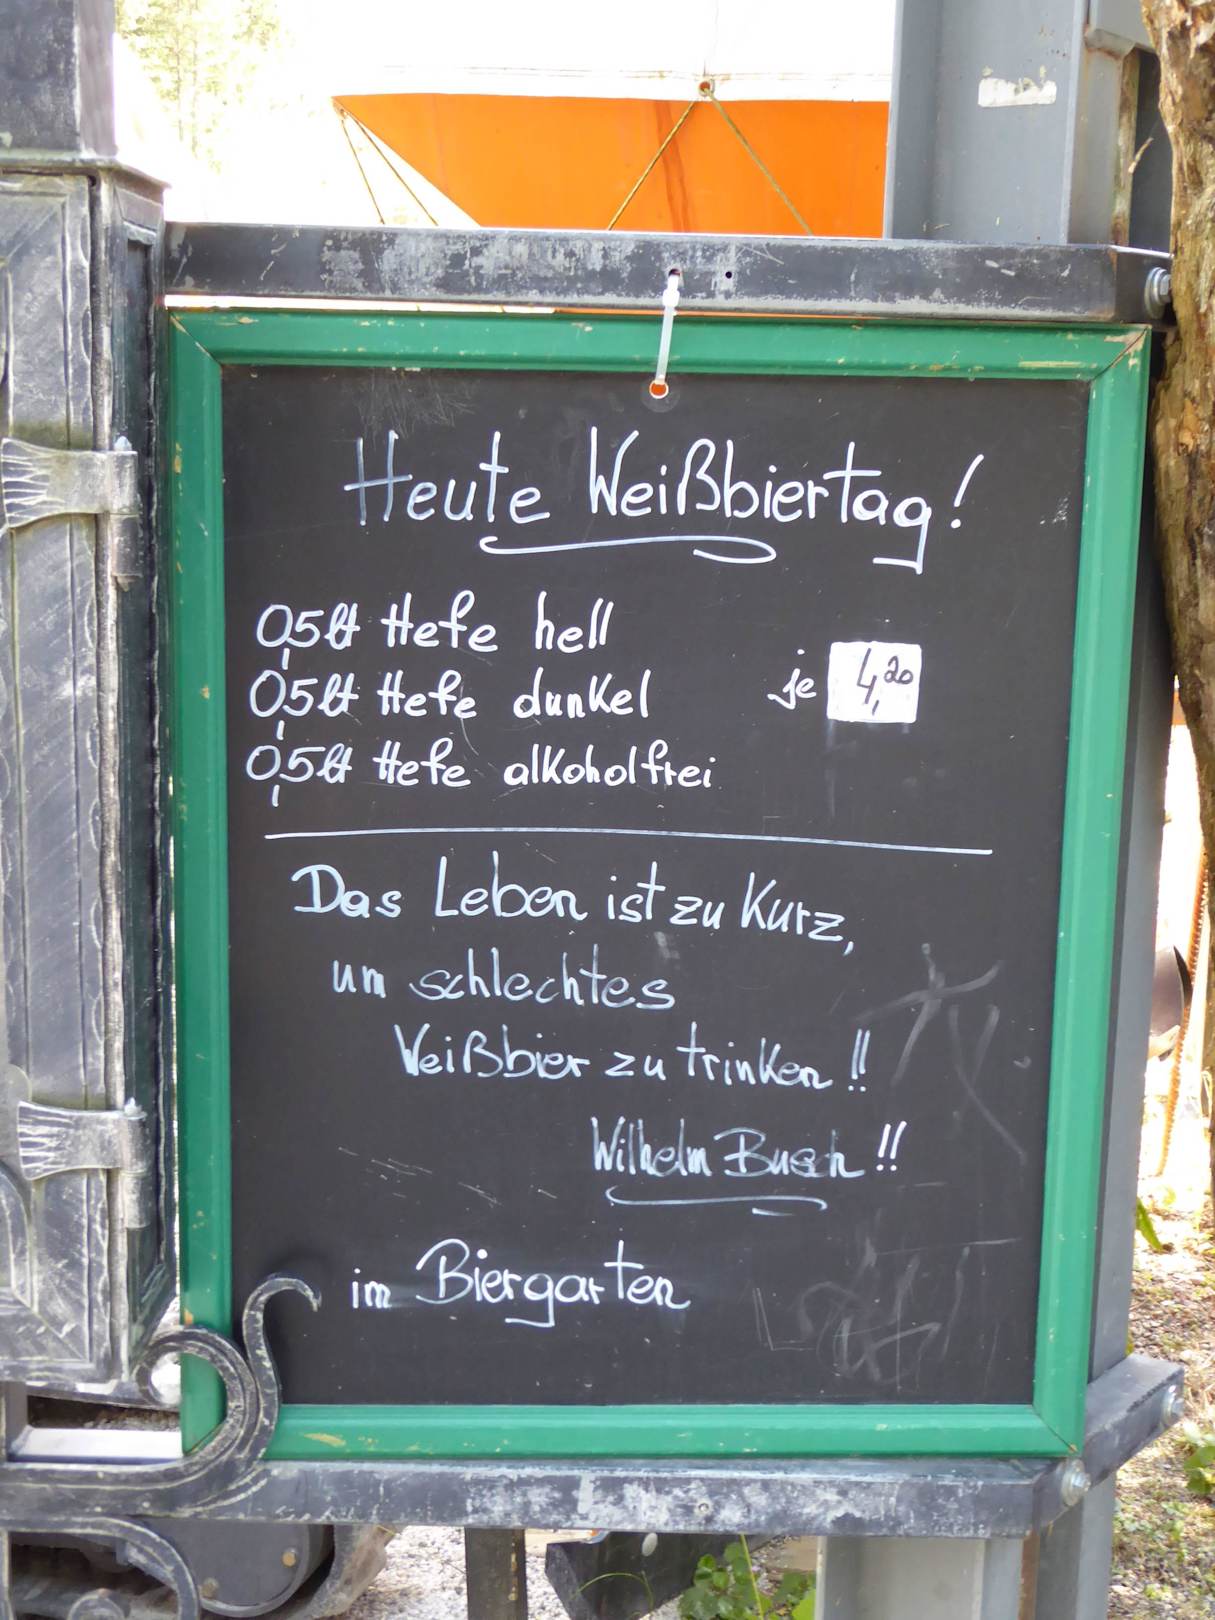 Heute Weißbiertag!
0,5lt Hefe hell
0,5lt Hefe dunkel je 4,20
0,5lt Hefe alkoholfrei
Das Leben ist zu Kurz,
um schlechtes
Weißbier zu trinken!!
Wilhelm Busch!!
im Biergarten